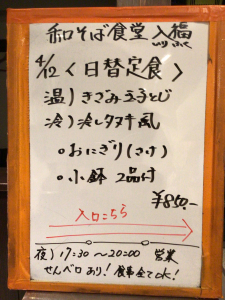 和そば食堂 入福
4/12 〈日替定食〉
温)きざみ玉子とじ
冷)冷しタヌキ風
○おにぎり(さけ)
○小鉢 2品付
¥850-
入口こちら
夜)17:30〜20:00 営業
せんべロあり!食事全てOK!